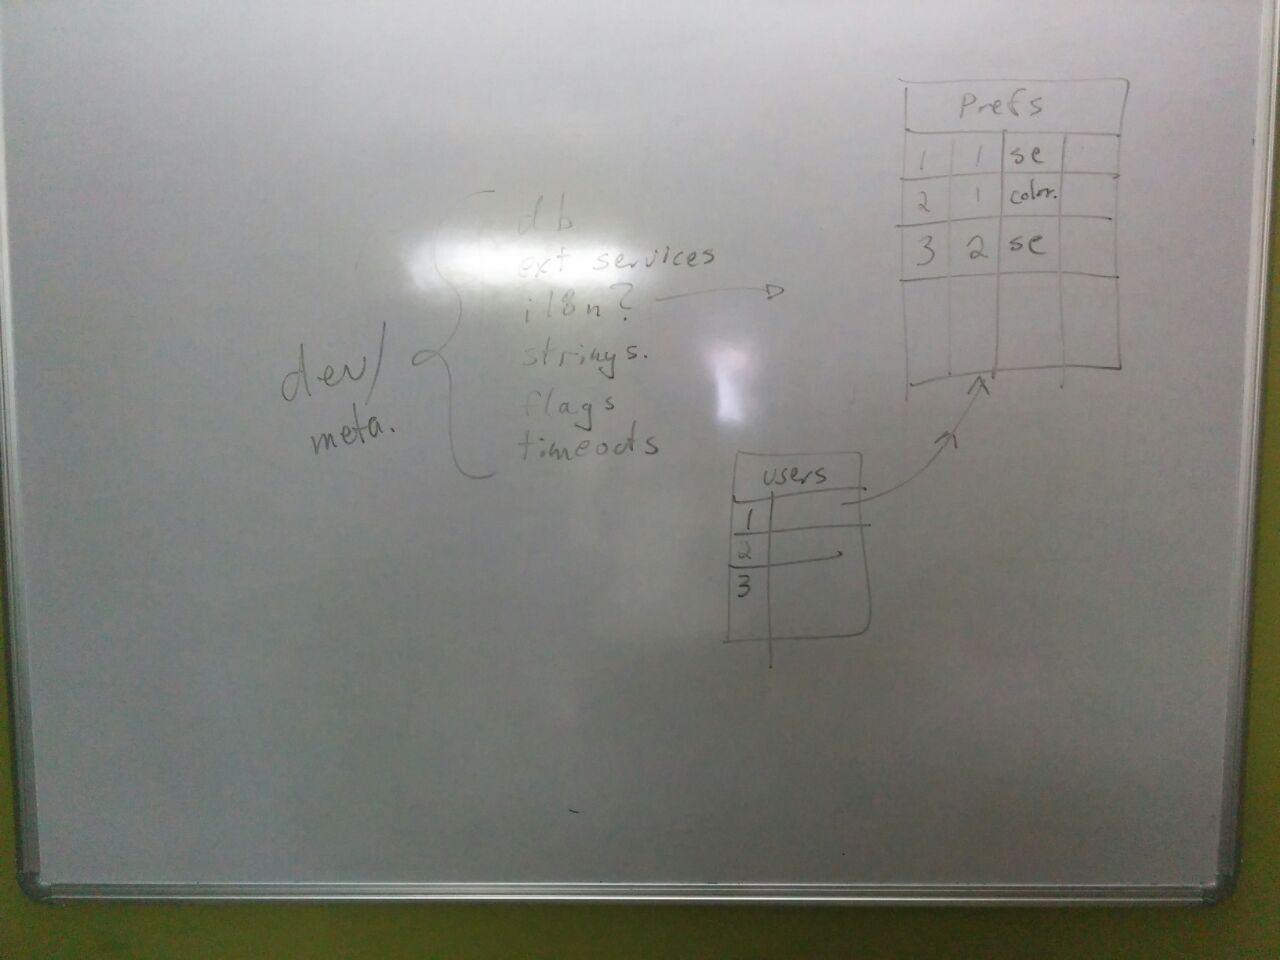 dev/
meta.
db
ext services
i18n?
strings.
flags
timeouts
Prefs
1 1 se
2 1 color.
3 2 se
users
1
2
3